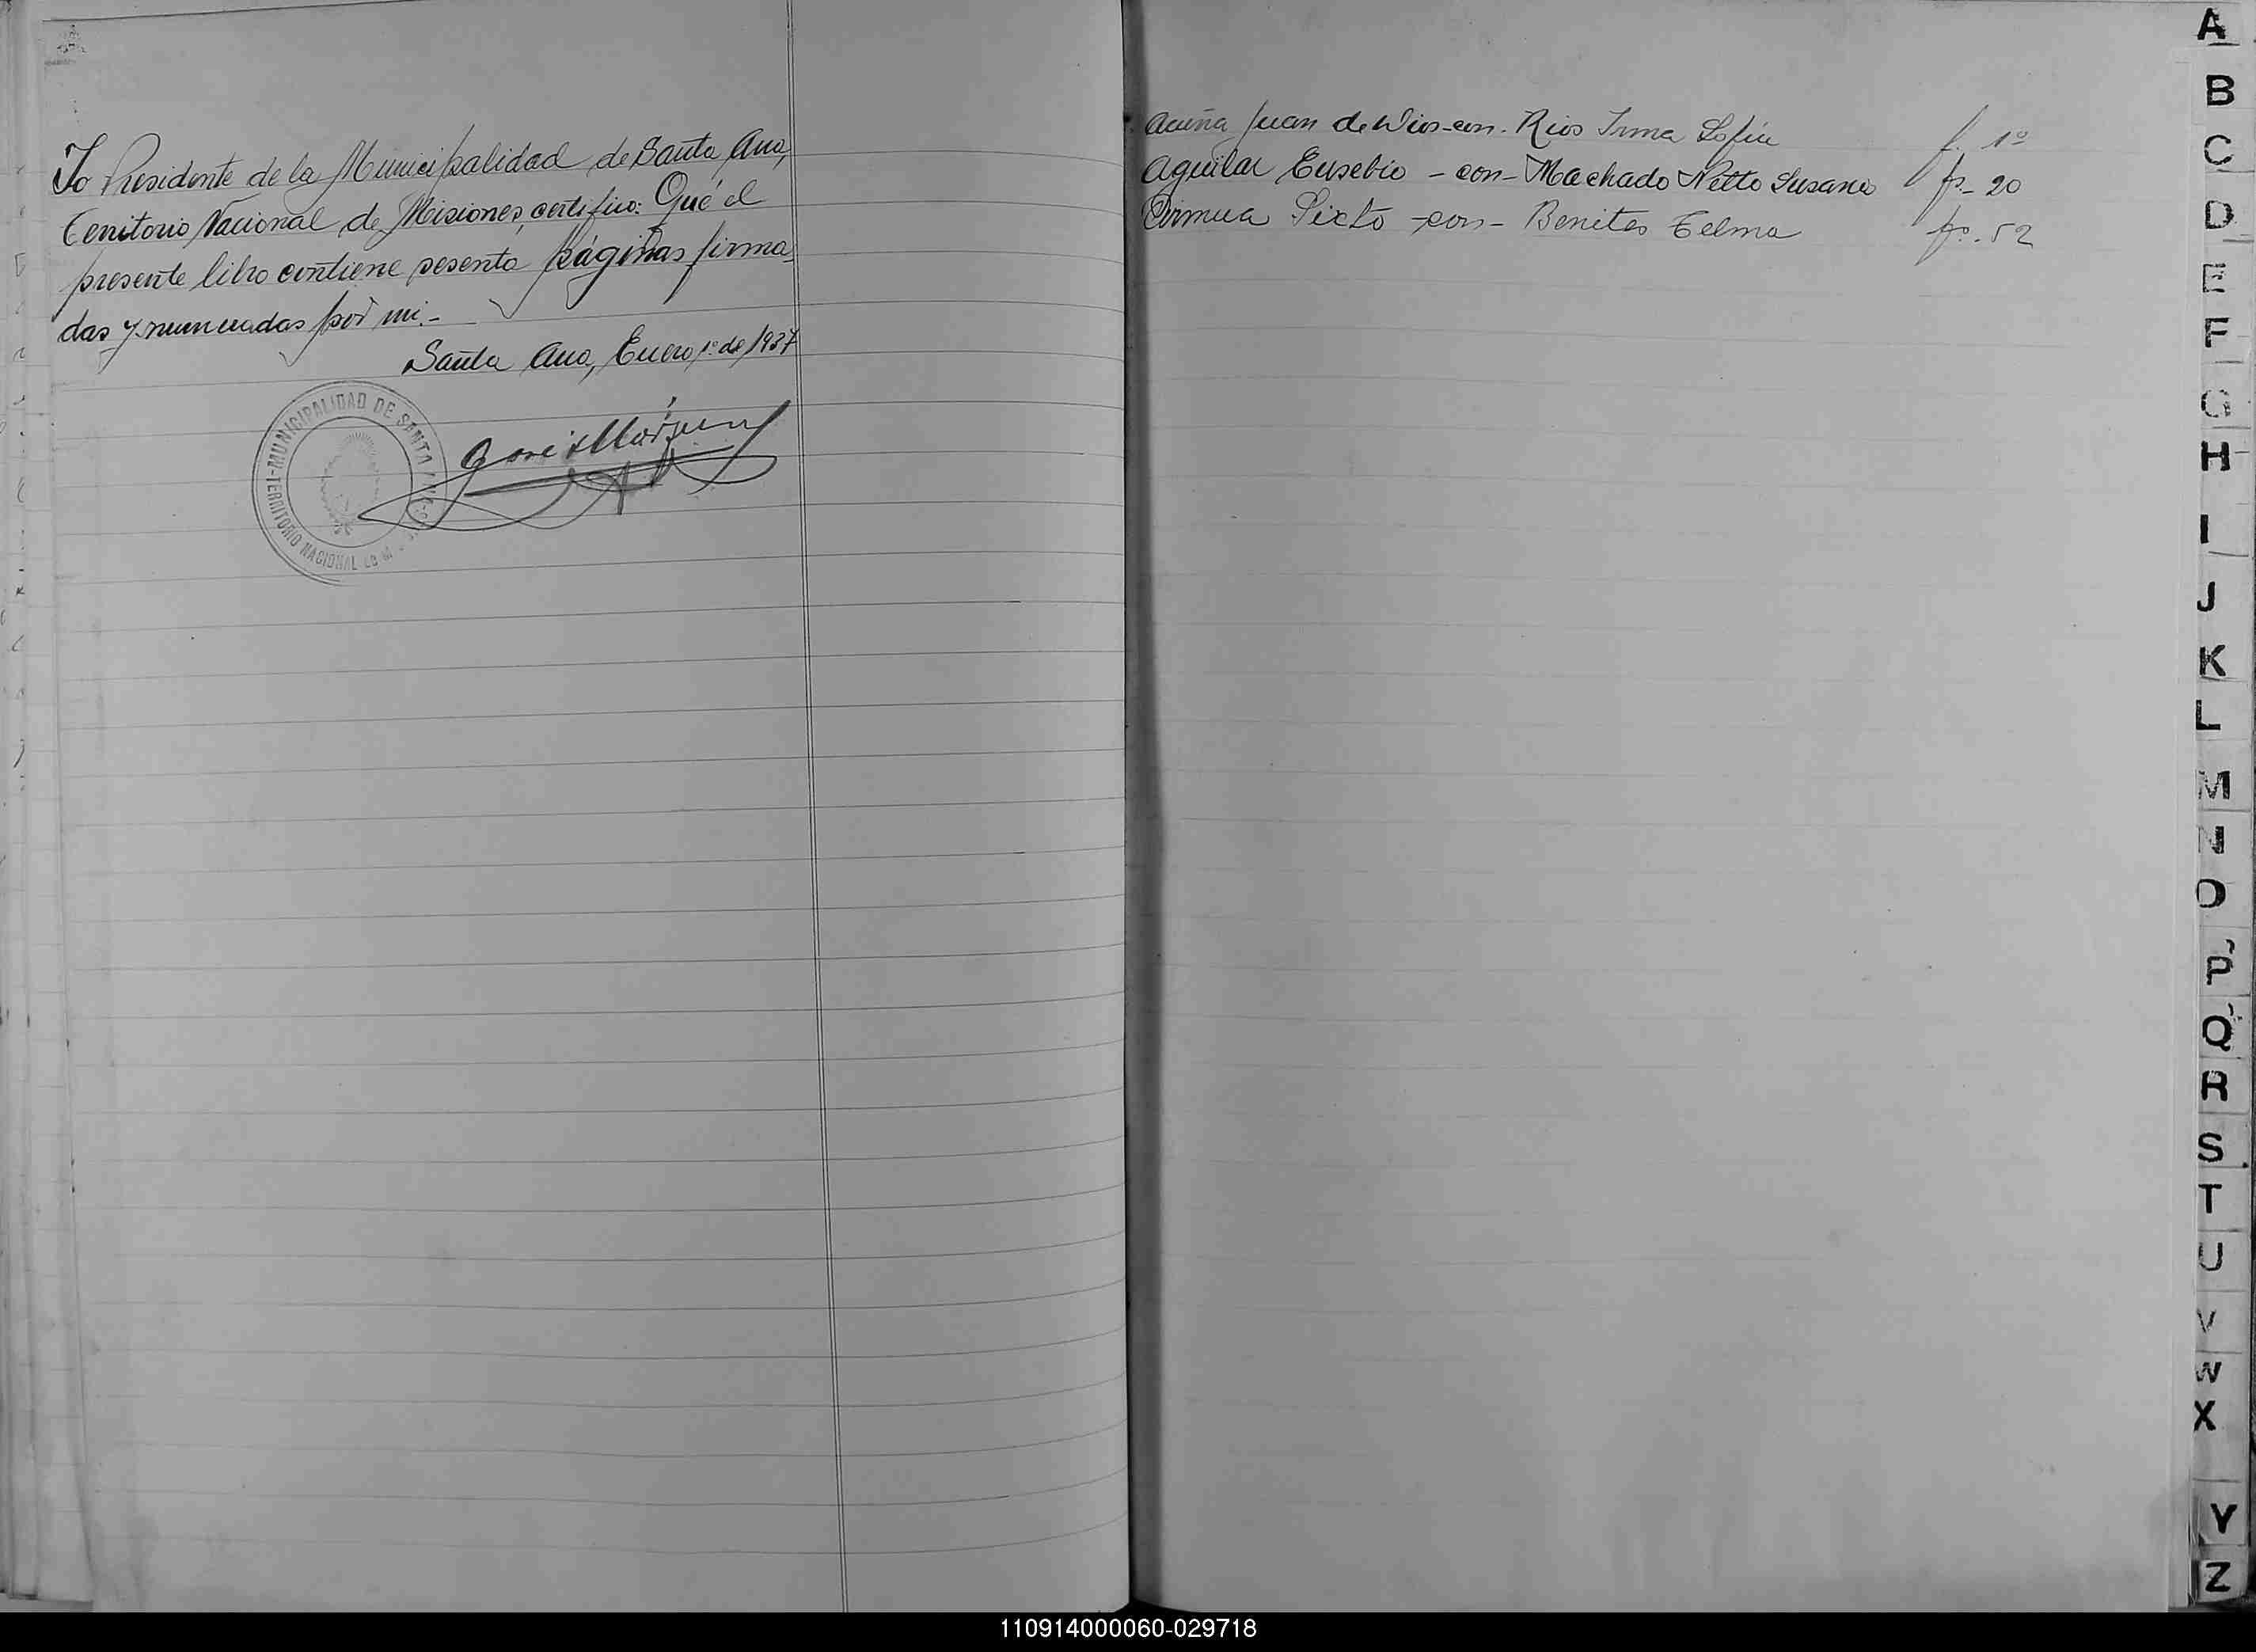 Yo Presidente de la Municipalidad de Santa Ana,
Territorio Nacional de Misiones, certifico: Qué el
presente libro contiene sesenta páginas firma-
das y numeradas por mi.-
Santa Ana, Enero 1º de 1937
MUNICIPALIDAD DE SANTA ANA
TERRITORIO NACIONAL DE
Acuña Juan de Dios - con - Rios Irma Sofia f. 1º
Aguilar Eusebio - con - Machado Netto Susana fs- 20
Sixto - con - Benites Telma fs. 52
A
B
C
D
E
F
G
H
I
J
K
L
M
N
O
P
Q
R
S
T
U
V
W
X
Y
Z
110914000060-029718